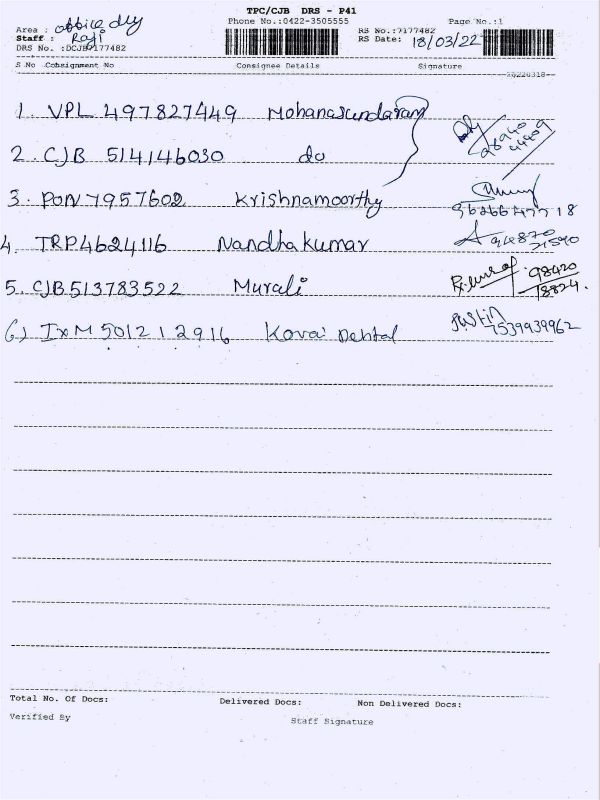 TPC/CJB DRS - P41
Area : office dly
Phone No.:0422-3505555
Page No.:1
Staff : Raji
RS No.:7177482
DRS No. :DCJB7177482
RS Date: 18/03/22
S No Consignment No Consignee Details Signature
20220318
1. VPL 497827449 Mohanasundaram
98940
44409
2. CJB 514146030 do
3. PON 7957602 Krishnamoorthy
9626647718
4. TRP4624116 Nandhakumar 94870
71590
5. CJB513783522 Murali 98420
18824.
6) IXM 501212916 Kovai Dental Justin
7539939962
Total No. Of Docs: Delivered Docs: Non Delivered Docs:
Verified By Staff Signature